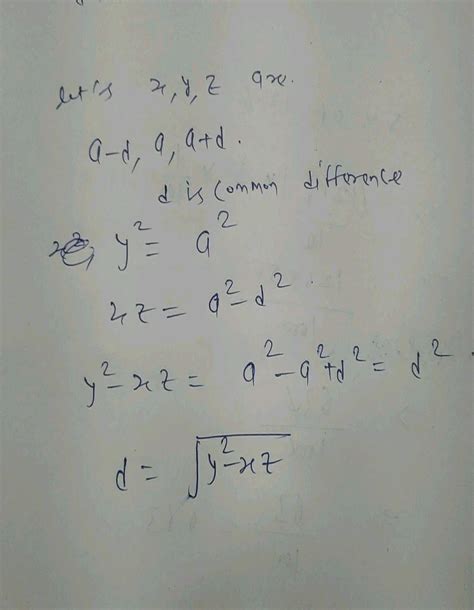 let's x, y, z are.
a-d, a, a+d.
d is common difference
y² = a²
xz = a²-d²
y²-xz = a²-a²+d² = d²
d = √(y²-xz)